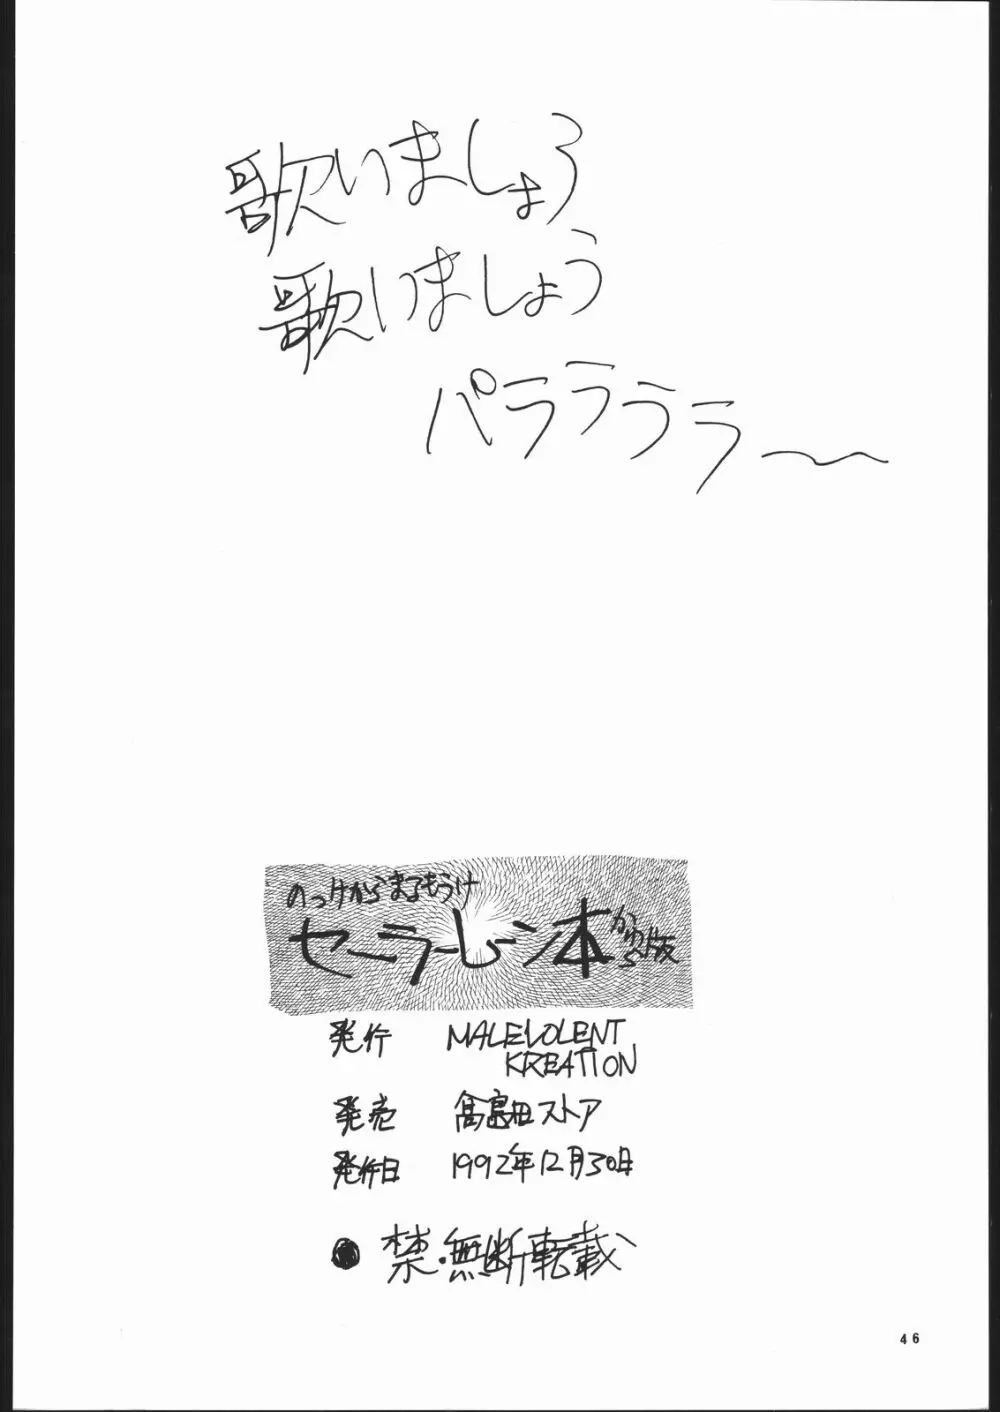 歌いましょう
歌いましょう
パララララ〜
のっけからまるもうけ
セーラームーン本
版
発行 MALEVOLENT
KREATION
発売 高島田ストア
発行日 1992年12月30日
●禁・無断転載
46